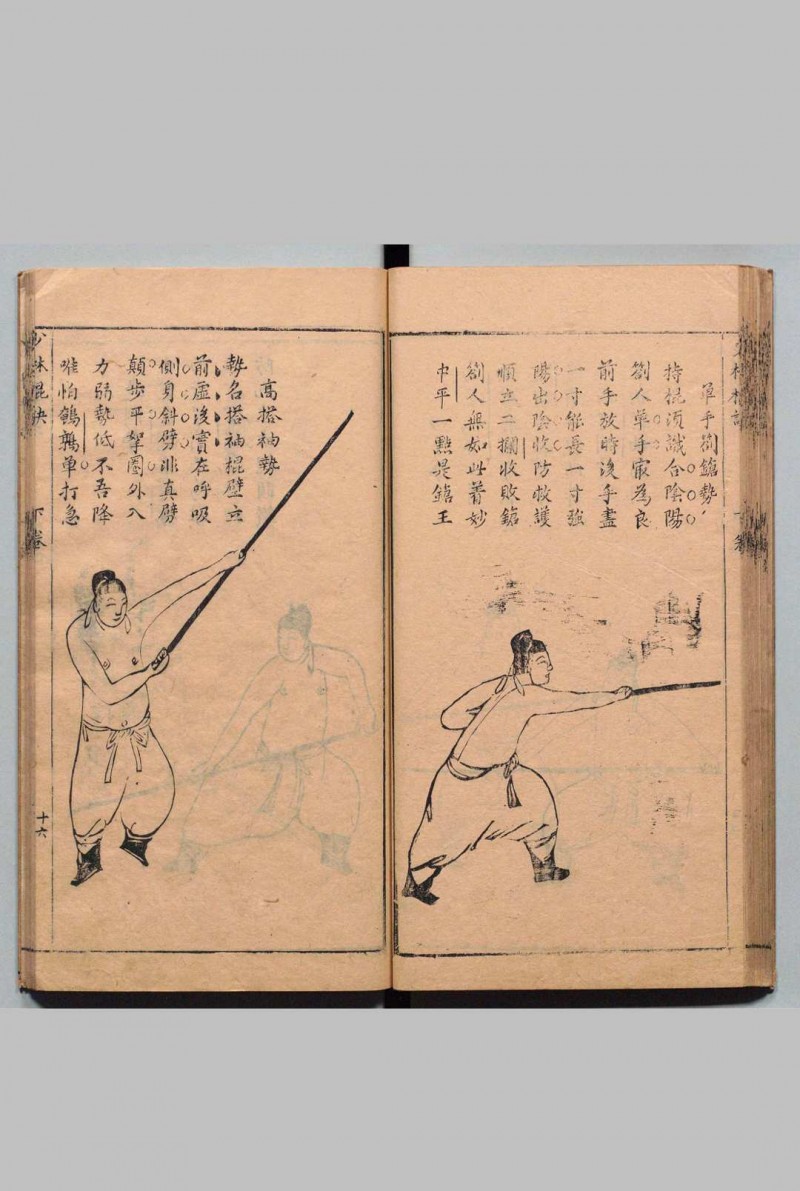 單手劄鎗勢
持棍須識合陰陽
劄人單手家為良
前手放時後手盡
一寸能長一寸強
陽出陰收防救護
順立二攔收敗鎗
劄人無如此着妙
中平一點是鎗王
高搭袖勢
勢名搭袖棍壁立
前虛後實在呼吸
側身斜劈非真劈
顛步平拏圈外入
力弱勢低不吾降
唯怕鵪鶉單打急
少林棍訣
下卷
十六